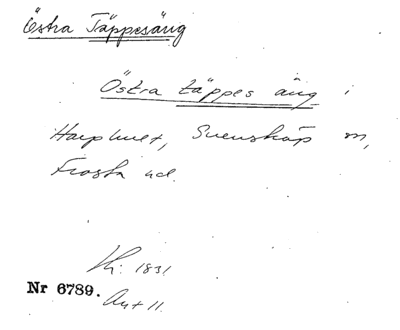 Östra Täppesäng
Östra täppes äng i
Harphult, Svensköp sn,
Frosta hd.
1831
Nr 6789.